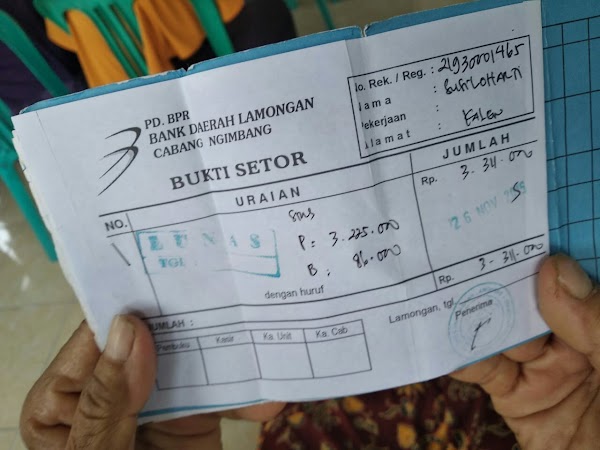 PD. BPR
BANK DAERAH LAMONGAN
CABANG NGIMBANG
BUKTI SETOR
No. Rek. / Reg. : 21930001465
Nama :
Pekerjaan :
Alamat : Kalen
NO. URAIAN JUMLAH
LUNAS
TGL
P : 3.225.000
B : 86.000
Rp. 3.311.000
26 NOV
dengan huruf
Rp. 3.311.000
JUMLAH :
Pembuku Kasir Ka. Unit Ka. Cab
Lamongan, tgl.
Penerima